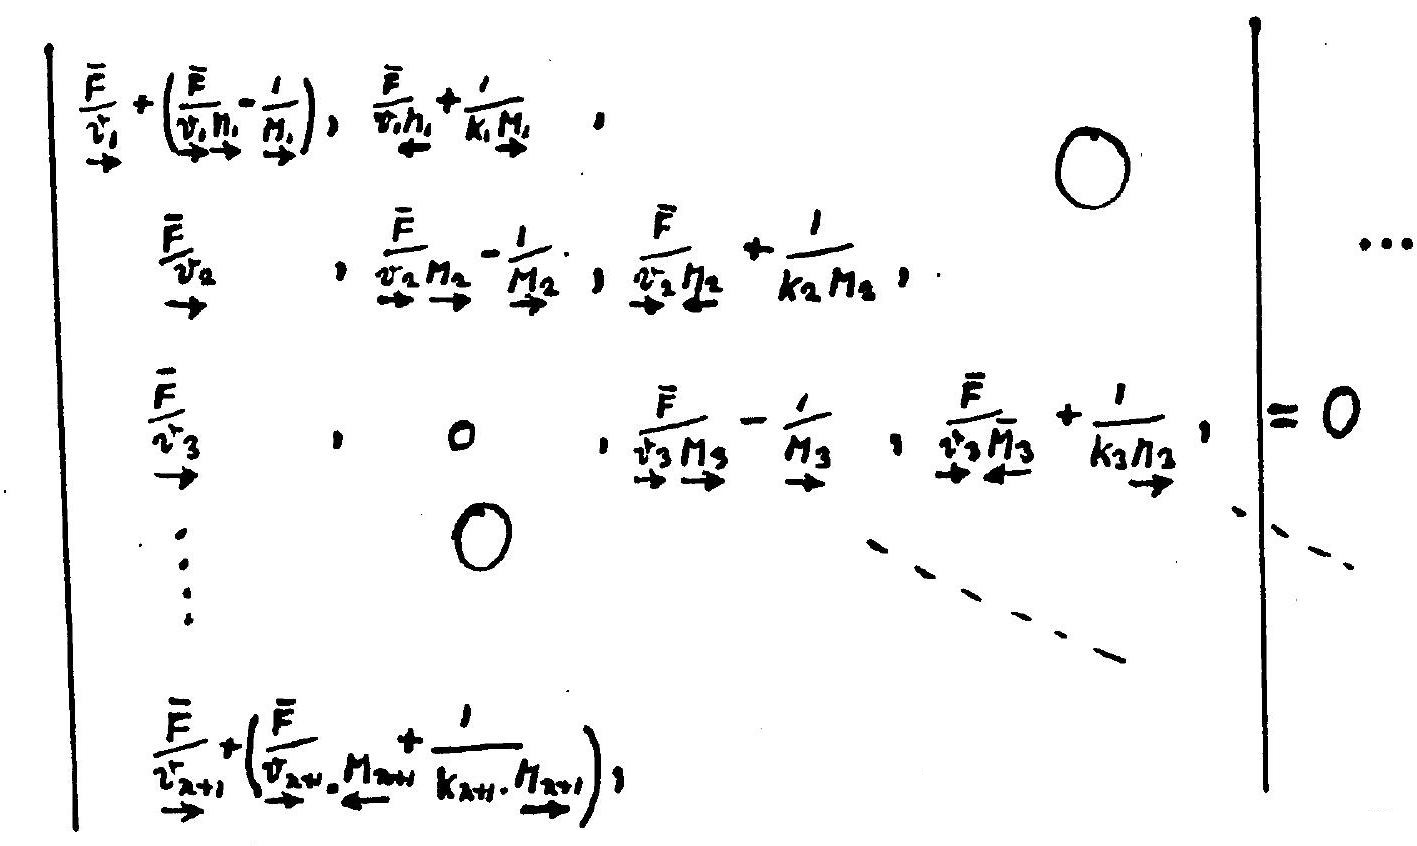 F̄/v₁ + (F̄/v₁n₁ - 1/M₁), F̄/v₁n₁ + 1/k₁M₁, , 0
F̄/v₂, F̄/v₂M₂ - 1/M₂, F̄/v₂M₂ + 1/k₂M₂, ...
F̄/v₃, 0, F̄/v₃M₃ - 1/M₃, F̄/v₃M̄₃ + 1/k₃M₃, = 0
0
F̄/vₙ₊₁ + (F̄/vₙ₊₁.Mₙ₊₁ + 1/kₙ₊₁.Mₙ₊₁),